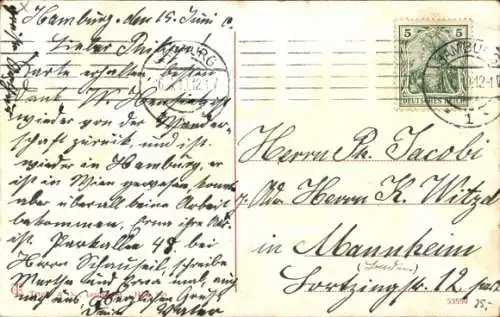 Hamburg, den 15. Juni 10.
Lieber Philipp!
Karte erhalten, besten
Dank. W. ist
wieder von der Wander-
schaft zurück, und ist
wieder in Hamburg, er
ist in Wien gewesen, konnte
aber überall keine Arbeit
bekommen. Erna ihre Adr.
ist Parkallee 48. bei
Herrn schreibe
Martha und Erna mal, auch
Herzlichen Gruß
Dein Vater
HAMBURG
5
5
DEUTSCHES REICH
HAMBURG
1
Herrn Ph. Jacobi
p. Adr. Herrn K. Witzel
in Mannheim
(Baden)
Lortzingstr. 12 part
53599
25.-